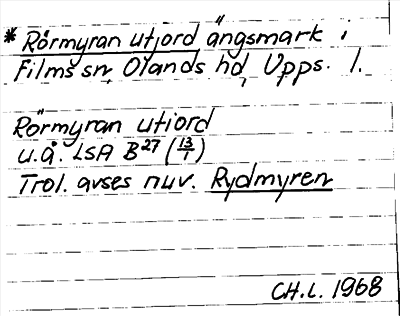 * Rörmyran utjord ängsmark i
Films sn, Olands hd, Upps. l.
Rörmyran utiord
u.å. LSA B27 (13/1)
Trol. avses nuv. Rydmyren
CH.L. 1968